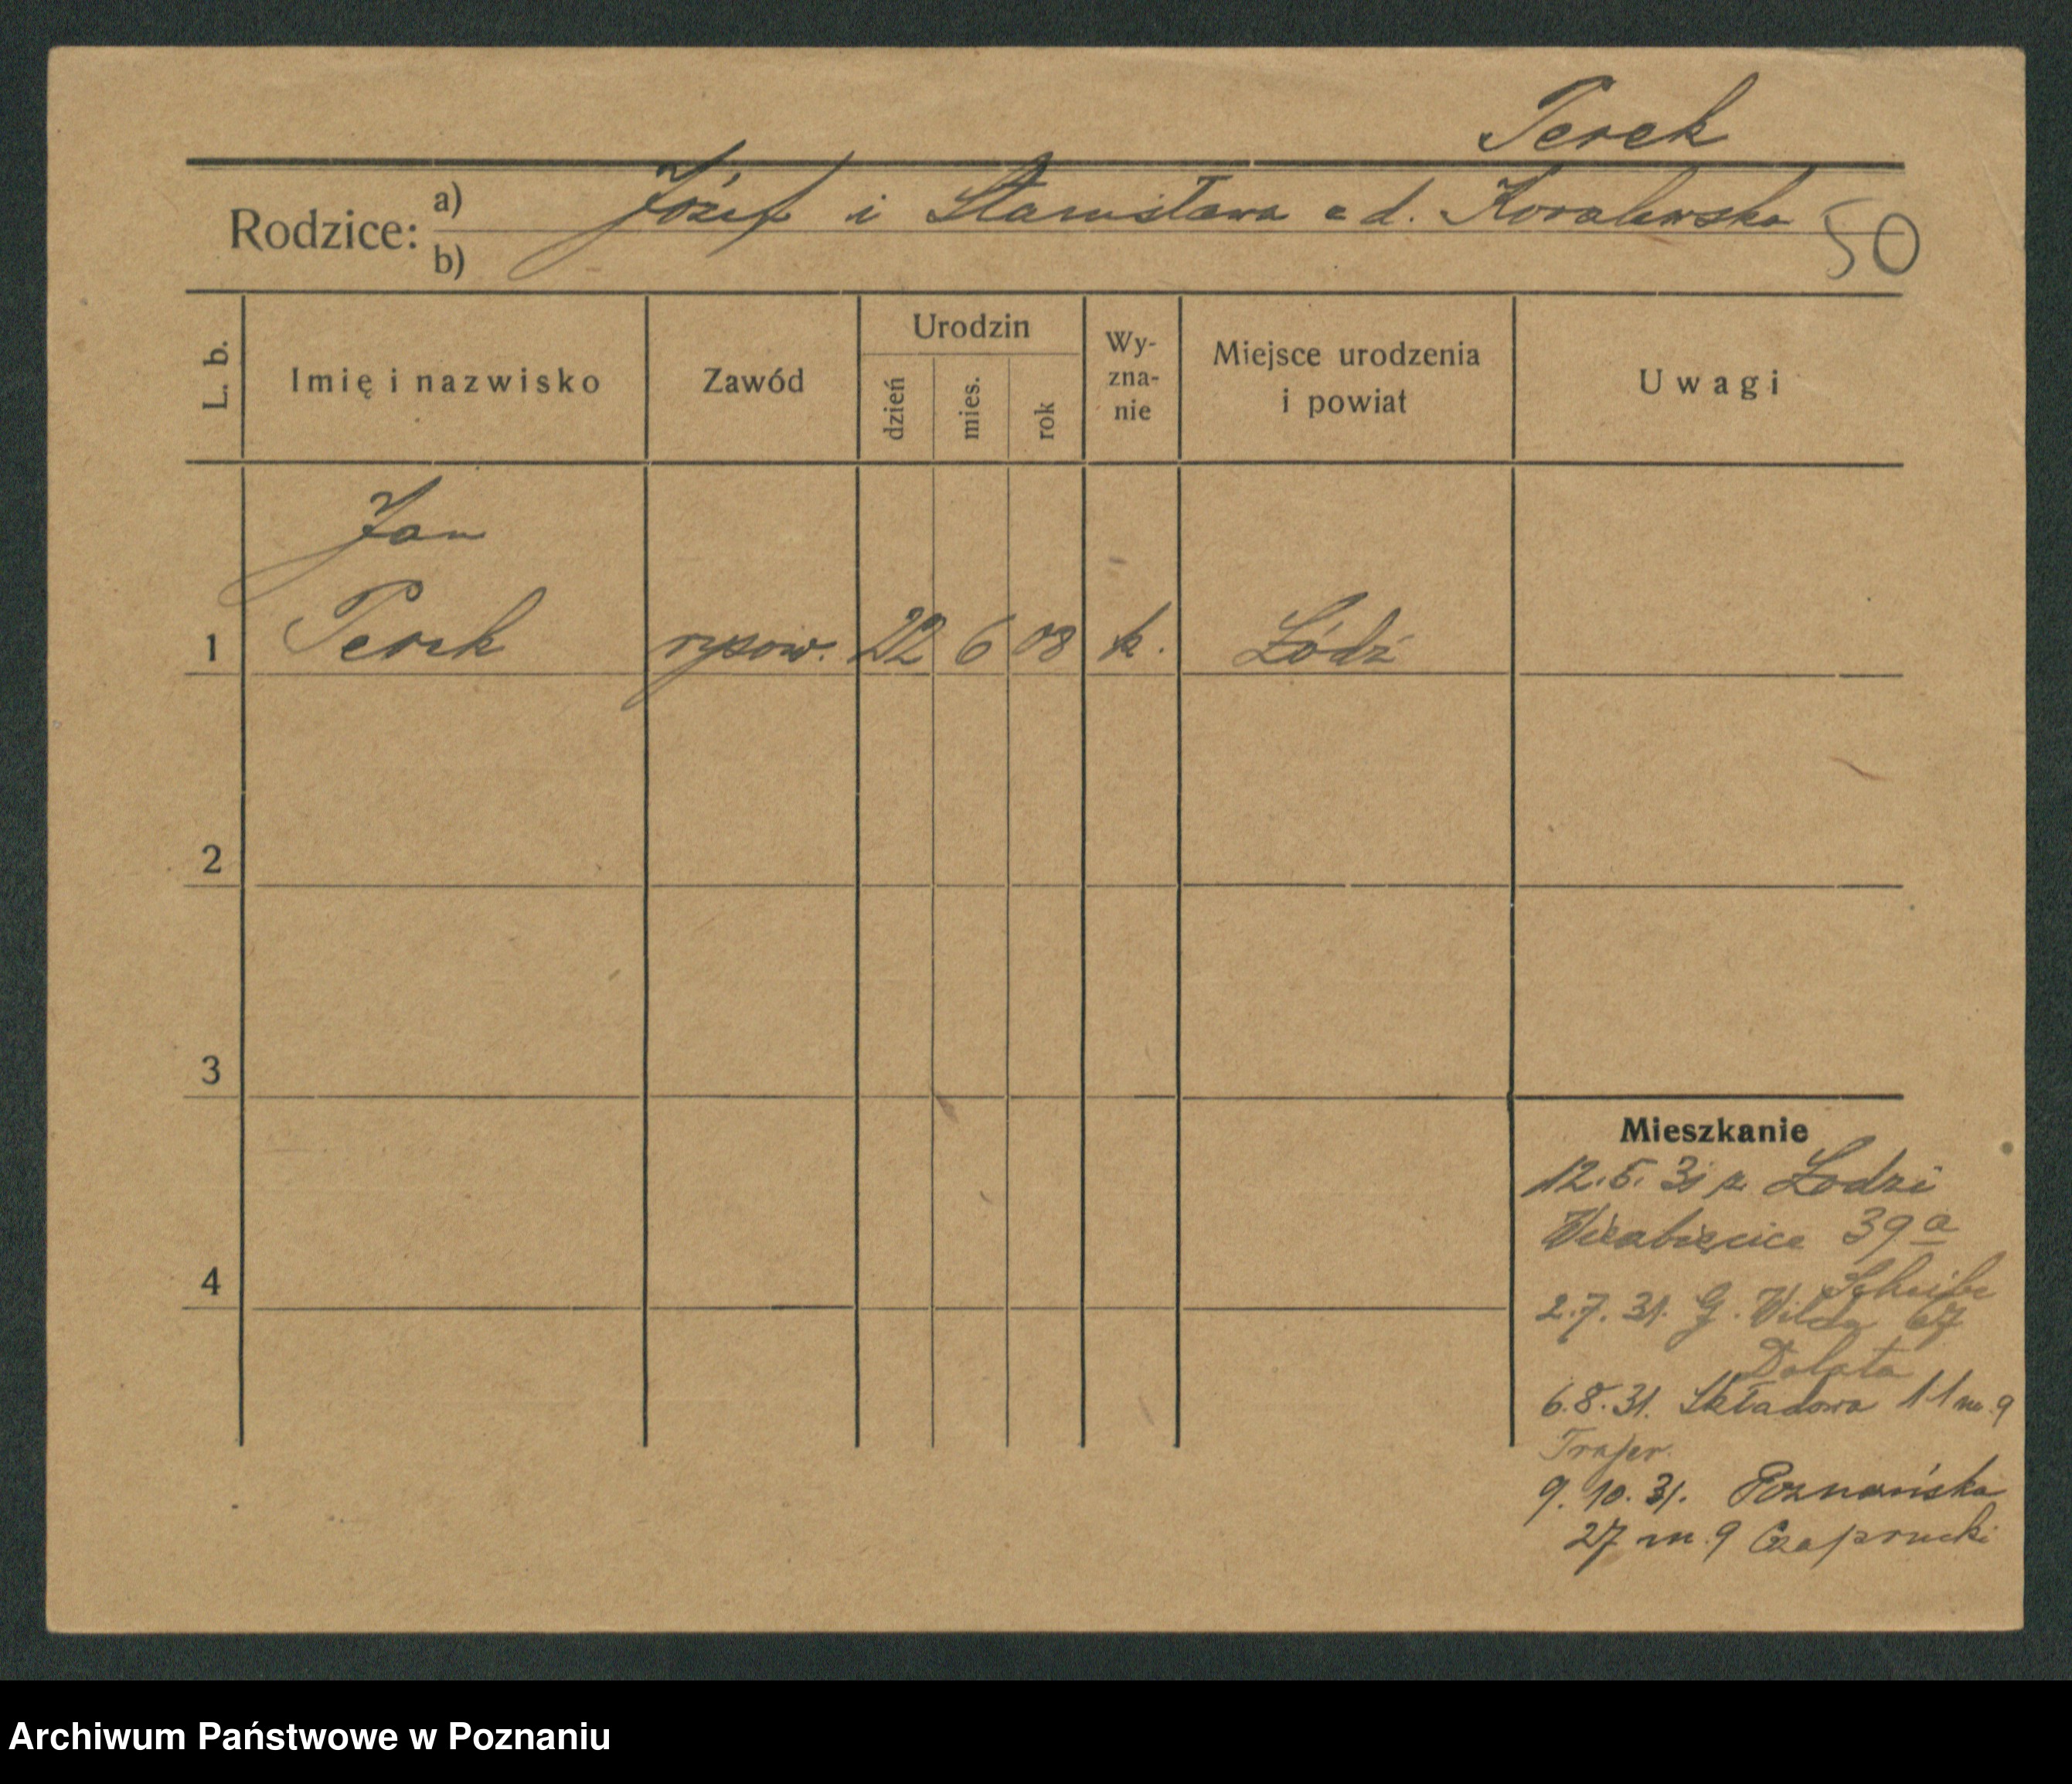 Perek
Rodzice: a) Józef i Stanisława z d. Kovalewska
b)
50
L. b.
Imię i nazwisko
Zawód
Urodzin
dzień
mies.
rok
Wy-
zna-
nie
Miejsce urodzenia
i powiat
Uwagi
Jan
1 Perek rysow. 22 6 08 k. Łódź
2
3
4
Mieszkanie
12.5.31 z Łodzi
39a
2.7.31. G. Wilda 67
Dolata
6.8.31. Składowa 11 m. 9
9.10.31. Poznańska
27 m. 9
Archiwum Państwowe w Poznaniu